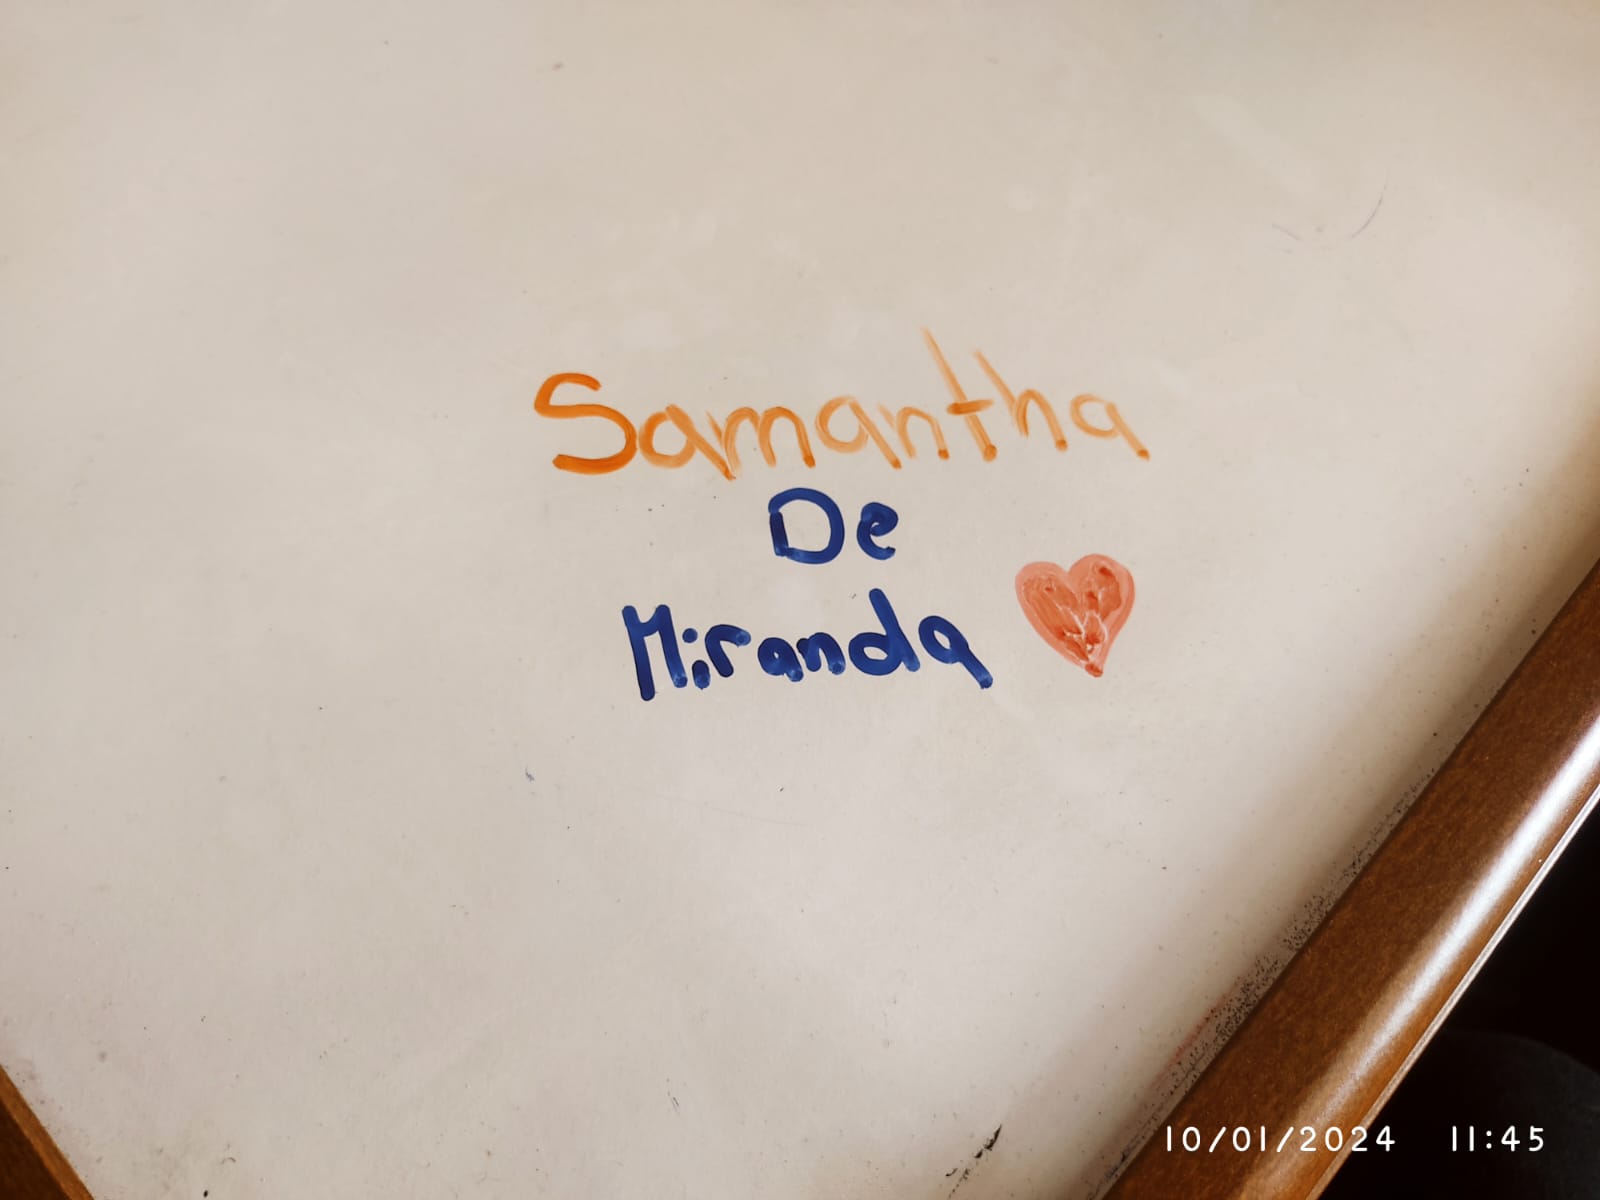 Samantha
De
Miranda
10/01/2024 11:45